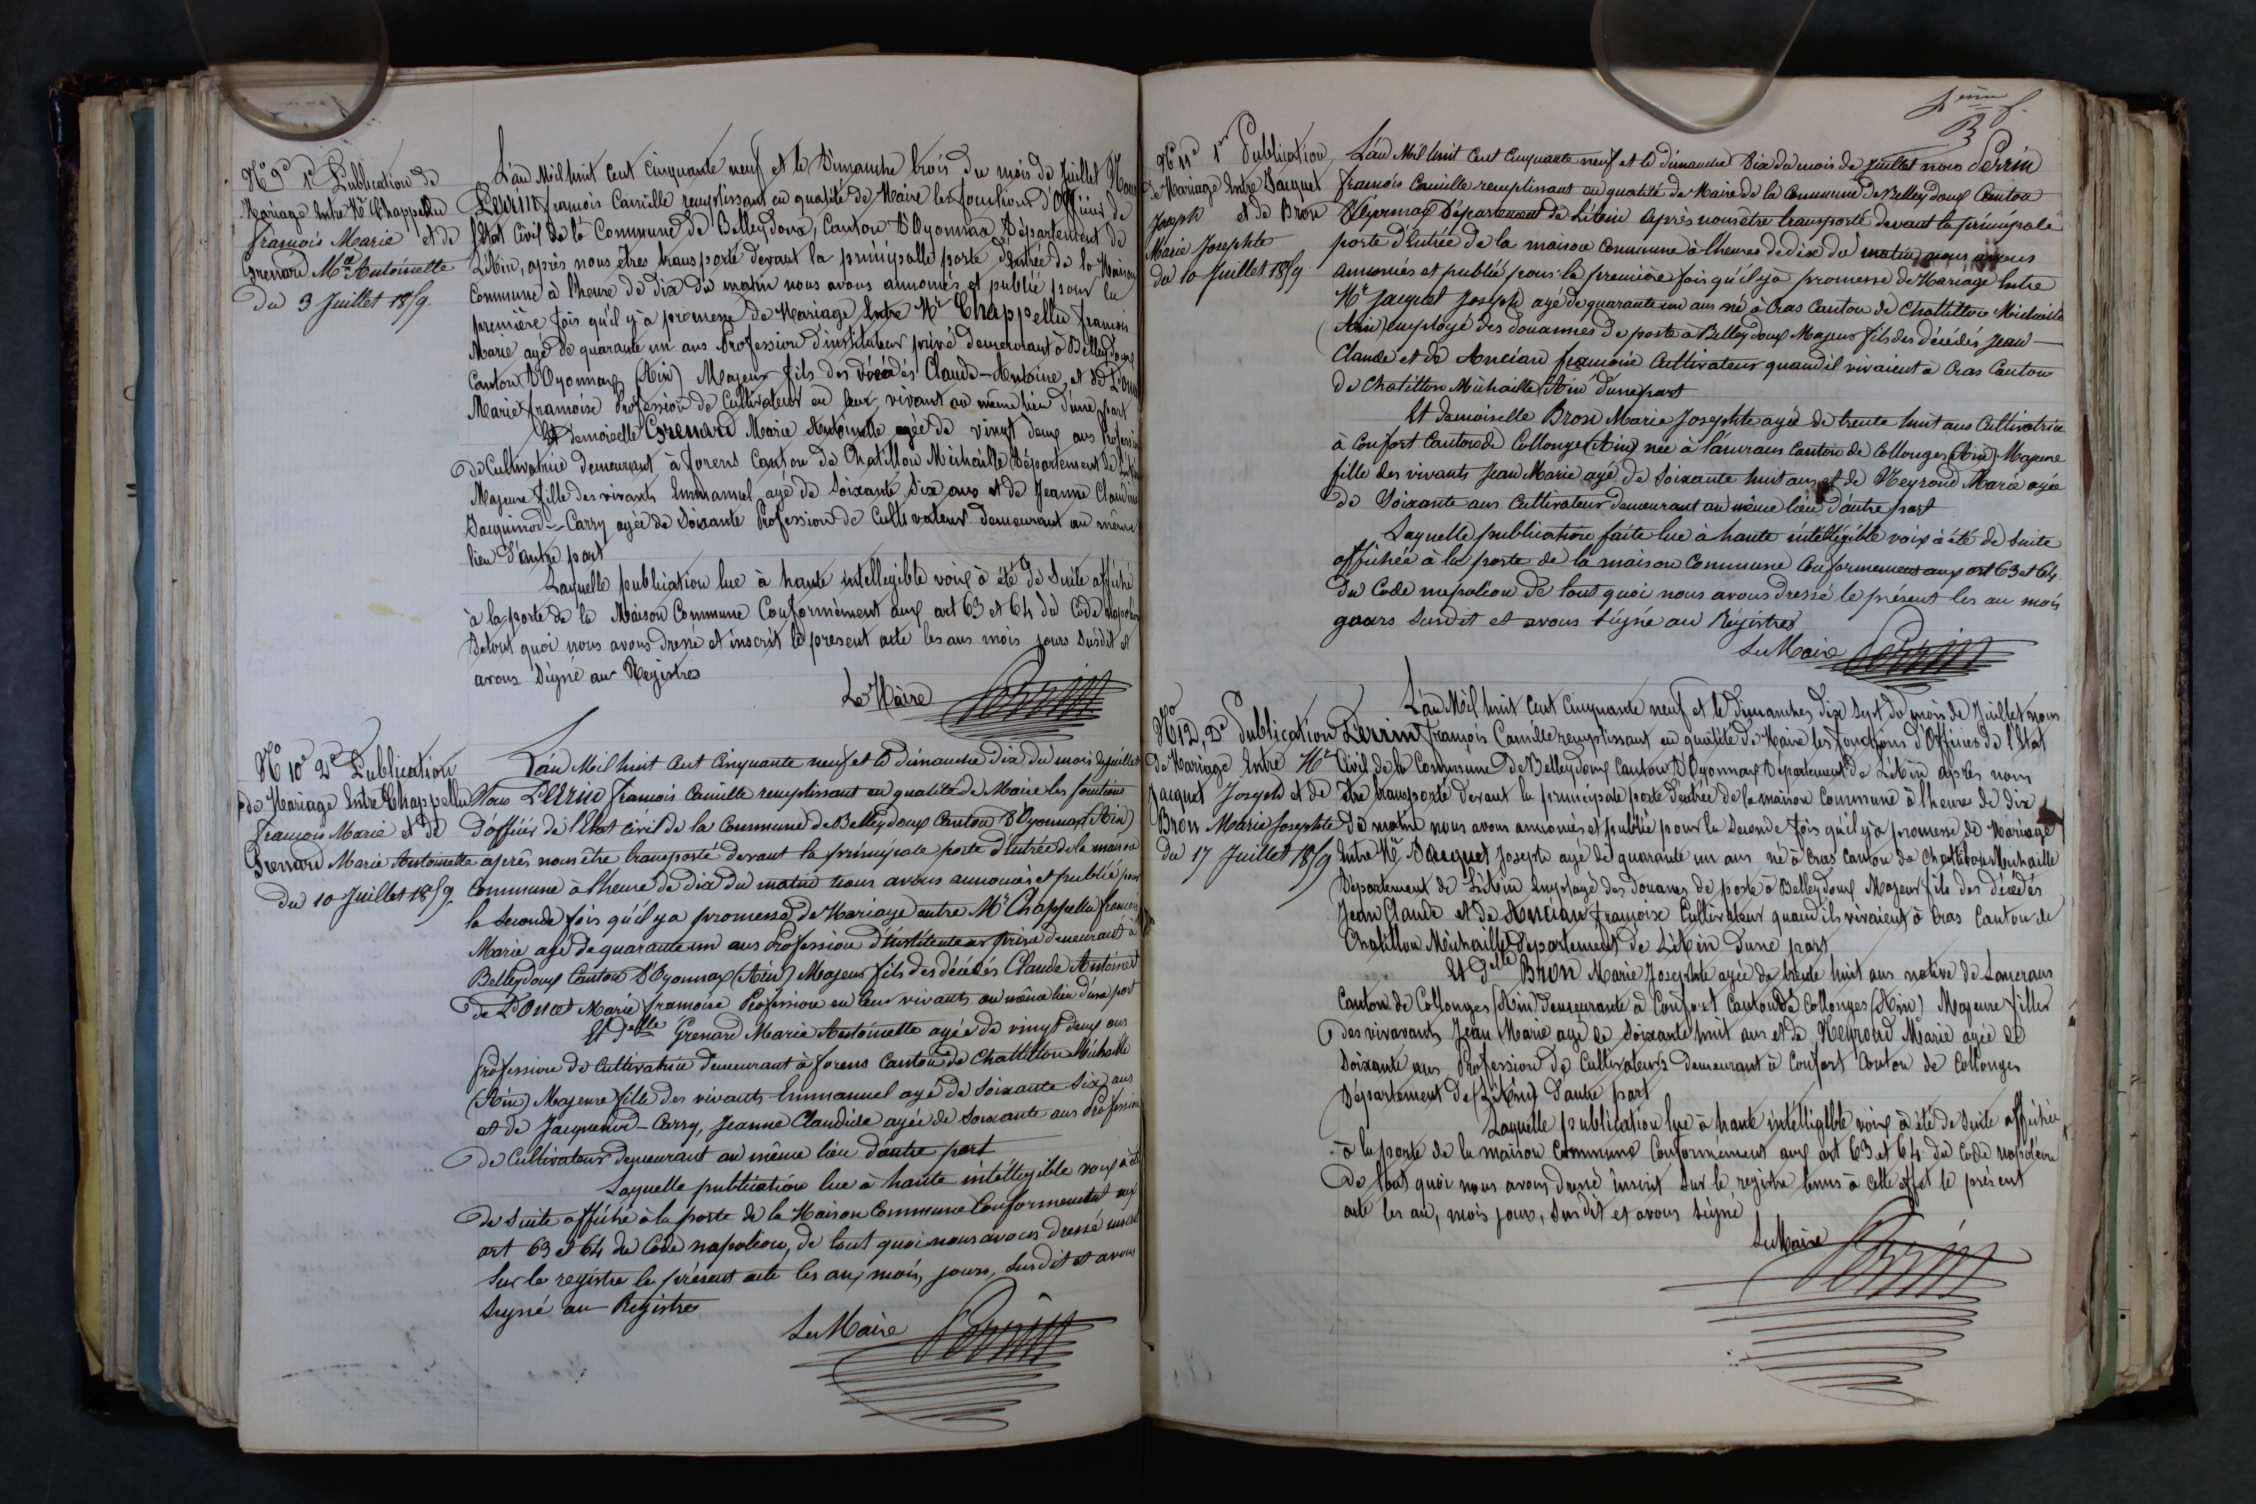 N° 9e 1e Publication de
Mariage Entre Mr Chappellu
françois Marie et de
Grenard Mie Antoinette
du 3 Juillet 1859.
L'an Mil huit cent cinquante neuf et le Dimanche trois du mois de Juillet Nous
Perrin françois Camille remplissant en qualité de Maire les fonctions d'Officier de
l'état Civil de la Commune de Belleydoux, Canton D'Oyonnax Département de
L'Ain, après nous êtres transporté devant la principalle porte d'entrée de la Maison
Commune à l'heure de dix du matin nous avons annoncés et publié pour la
première fois qu'il y'a promesse de Mariage Entre Mr Chappellu françois
Marie agé de quarante un ans Profession d'instituteur privé demeurant à Belleydoux
Canton D'Oyonnax (Ain) Majeur fils des décédés Claude-Antoine, et de
Marie françoise Profession de Cultivateur en leur vivant au même lieu d'une part
Et demoiselle Grenard Marie Antoinette agée de vingt deux ans Profession
de Cultivatrice demeurant à forens Canton de Chatillon Michaille Département de L'Ain
Majeure fille des vivants Emmanuel agé de soixante six ans et de Jeanne Claudine
Jacquinod-Carry agée de soixante Profession de Cultivateur demeurant au même
lieu d'autre part
Laquelle publication lue à haute intellegible voix à été de suite affiché
à la porte de la Maison Commune Conformèment aux art 63 et 64 du Code napoléon
De tout quoi nous avons dressé et inscrit le présent acte les ans mois jours susdit et
avons signé au Registres
Le Maire Perrin
N° 10e 2e Publication
de Mariage Entre Chappellu
françois Marie et de
Grenard Marie Antoinette
du 10 Juillet 1859.
L'an Mil huit cent cinquante neuf et le dimanche dix du mois de juillet
Nous Perrin françois Camille remplissant en qualité de Maire les fonctions
d'officier de l'Etat civil de la Commune de Belleydoux Canton D'Oyonnax (Ain)
après nous être transporté devant la principale porte d'entrée de la maison
Commune à l'heure de dix du matin nous avons annoncés et publié pour
la seconde fois qu'il y a promesse de Mariage entre Mr Chappellu françois
Marie agé de quarante un ans Profession d'instituteur privé demeurant à
Belleydoux Canton D'Oyonnax (Ain) Majeur fils des décédés Claude Antoine et
de Marie françoise Profession en leur vivants au même lieu d'une part
Et Delle Grenard Marie Antoinette agée de vingt deux ans
Profession de Cultivatrice demeurant à forens Canton de Chatillon Michaille
(Ain) Majeure fille des vivants Emmanuel agé de soixante six ans
et de Jacquinod-Carry, Jeanne Claudine agée de soixante ans Profession
de Cultivateur demeurant au même lieu d'autre part
Laquelle publication lue à haute intéllegible voix à été
de suite affiché à la porte de la Maison Commune Conformement aux
art 63 et 64 du Code napoléon, de tout quoi nous avons dressé inscrit
sur le registre le présent acte les an, mois, jours, susdit et avons
signé au Registres
Le Maire Perrin
N° 11e 1er Publication
de Mariage Entre Jacquet
Joseph et de Bron
Marie Josephte
du 10 Juillet 1859.
L'an Mil huit cent cinquante neuf et le dimanche dix du mois de juillet nous Perrin
françois Camille remplissant en qualité de Maire de la Commune de Belleydoux Canton
D'Oyonnax Département de L'Ain Après nous être transporté devant la principale
porte d'Entrée de la maison Commune à l'heures de dix du matin nous avons
annoncés et publié pour la première fois qu'il y'a promesse de Mariage Entre
Mr Jacquet Joseph agé de quarante un ans né à Cras Canton de Chatillon Michaille
(Ain) employé des douannes de poste à Belleydoux Majeur fils des décédés Jean
Claude et de Ancian françoise Cultivateur quand il vivaient à Cras Canton
de Chatillon Michaille (Ain) d'une part
Et demoiselle Bron Marie Josephte agée de trente huit ans Cultivatrice
à Confort Canton de Collonge (Ain) née à Lancrans Canton de Collonges (Ain) Majeure
fille des vivants Jean Marie agé de soixante huit ans et de Neyroud Marie agée
de Soixante ans Cultivateur demeurant au même lieu d'autre part
Laquelle publication faite lue à haute intelligible voix à été de suite
affichée à la porte de la maison Commune Conformement aux art 63 et 64
du Code napoléon De tout quoi nous avons dressé le présent les an mois
jours susdit et avons signé au Régistres
Le Maire Perrin
N° 12, 2e Publication
de Mariage Entre Mr
Jacquet Joseph et de
Bron Marie Josephte
du 17 Juillet 1859
L'an Mil huit cent cinquante neuf et le dimanches dix sept du mois de Juillet nous
Perrin François Camille remplissant en qualité de Maire les fonctions d'Officier de l'Etat
Civil de la Commune de Belleydoux Canton D'Oyonnax Département de L'Ain après nous
être transporté devant la principale porte d'entrée de la maison Commune à l'heure de dix
du matin nous avons annoncés et publié pour la seconde fois qu'il y'a promesse de Mariage
Entre Mr Jacquet Joseph agé de quarante un ans né à Cras canton de Chatillon Michaille
Département de L'Ain Employé des Douanes de poste à Belleydoux Majeur fils des décédés
Jean Claude et de Ancian françoise Cultivateur quand ils vivaient à Cras Canton de
Chatillon Michaille Département de L'Ain d'une part
Et Delle Bron Marie Josephte agée de trente huit ans native de Lancrans
Canton de Collonges (Ain) demeurante à Confort Canton de Collonges (Ain) Majeure filles
des vivavants Jean Marie agé de soixante huit ans et de Neyroud Marie agée de
soixante ans Profession de Cultivateurs demeurant à Confort Canton de Collonges
Département de (L'Ain) d'autre part
Laquelle publication lue à haute intélligible voix à été de suite affichée
à la porte de la maison Commune Conformément aux art 63 et 64 du Code napoléon
De tout quoi nous avons dressé inscrit sur le registre tenus à cette effet le présent
acte les an, mois jour, susdit et avons signé
Le Maire Perrin